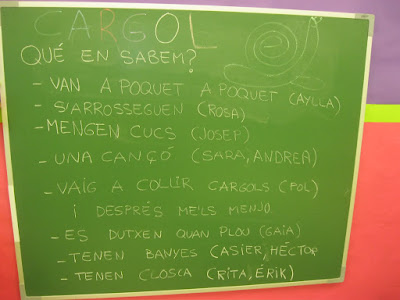 CARGOL
QUÈ EN SABEM?
- VAN A POQUET A POQUET (AYLLA)
- S'ARROSSEGUEN (ROSA)
- MENGEN CUCS (JOSEP)
- UNA CANÇÓ (SARA, ANDREA)
- VAIG A COLLIR CARGOLS (POL)
I DESPRÉS ME'LS MENJO
- ES DUTXEN QUAN PLOU (GAIA)
- TENEN BANYES (ASIER, HÉCTOR
- TENEN CLOSCA (RITA, ÉRIK)